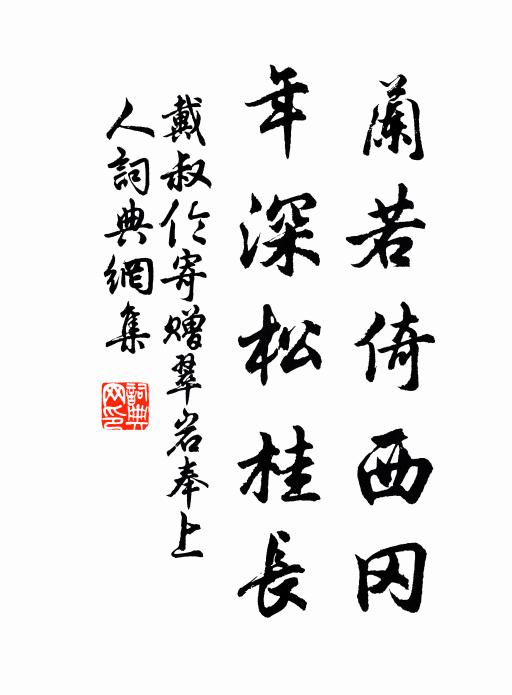 蘭若倚西冈
年深松桂長
戴叔伦寄赠翠岩奉上
人詞典網集
詞典
网印